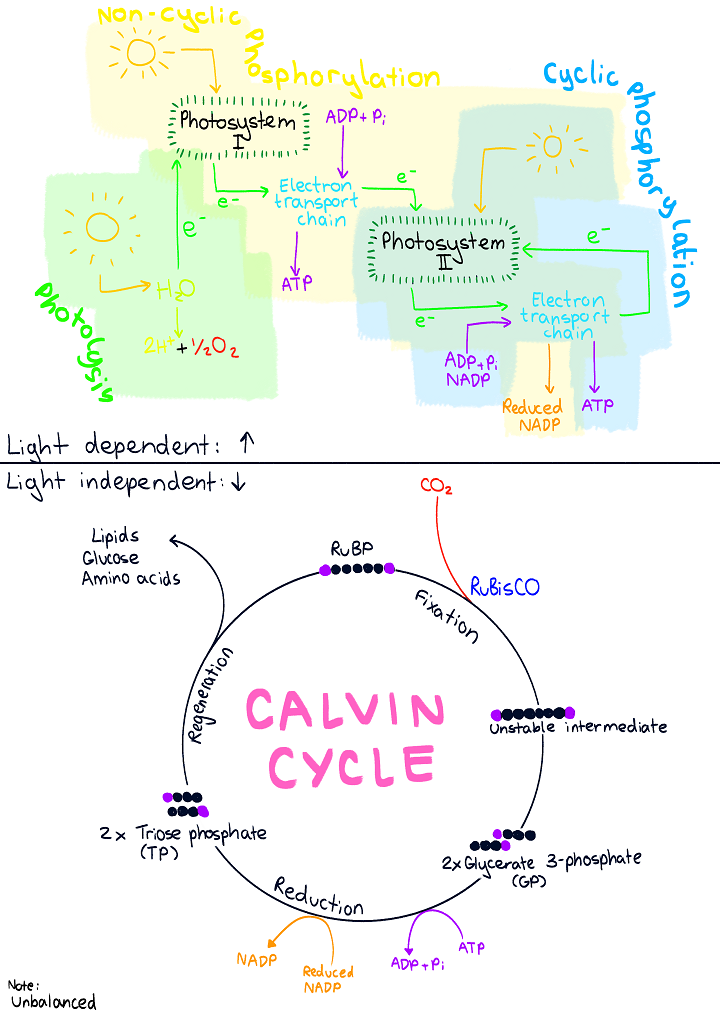 Non-Cyclic Phosphorylation
Cyclic phosphorylation
Photosystem
I
ADP + Pi
e⁻
e⁻
Electron
transport
chain
e⁻
ATP
Photosystem
II
e⁻
H₂O
2H⁺ + ½O₂
Photolysis
e⁻
Electron
transport
chain
ADP + Pi
NADP
Reduced
NADP
ATP
Light dependent: ↑
Light independent: ↓
CO₂
Lipids
Glucose
Amino acids
RuBP
RuBisCO
Fixation
Regeneration
CALVIN
CYCLE
Unstable intermediate
2x Triose phosphate
(TP)
2x Glycerate 3-phosphate
(GP)
Reduction
NADP
Reduced
NADP
ADP + Pi
ATP
Note:
Unbalanced